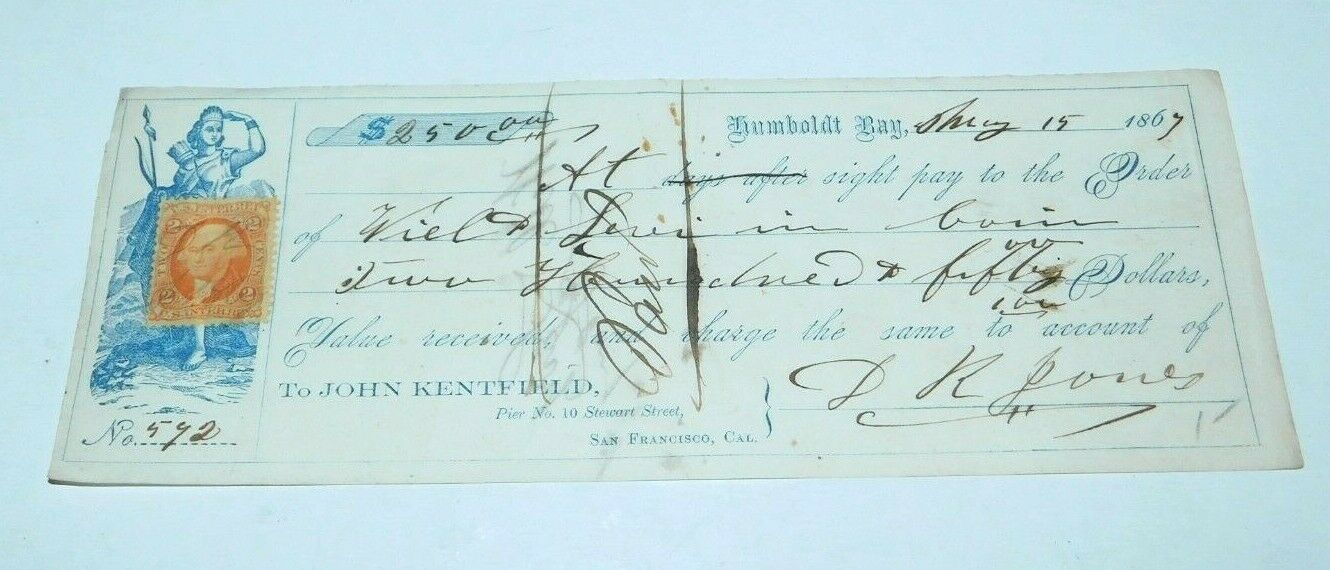 $250.00
Humboldt Bay, May 15 1867
At days after sight pay to the Order
of Wiel & Levi in Coin
Two Hundred & fifty 00/100 Dollars,
Value received, and charge the same to account of
To JOHN KENTFIELD,
Pier No. 10 Stewart Street,
SAN FRANCISCO, CAL.
D R Jones
No. 592
U.S. INTER. REV.
2 2
TWO CENTS
2 2
U.S. INTER. REV.